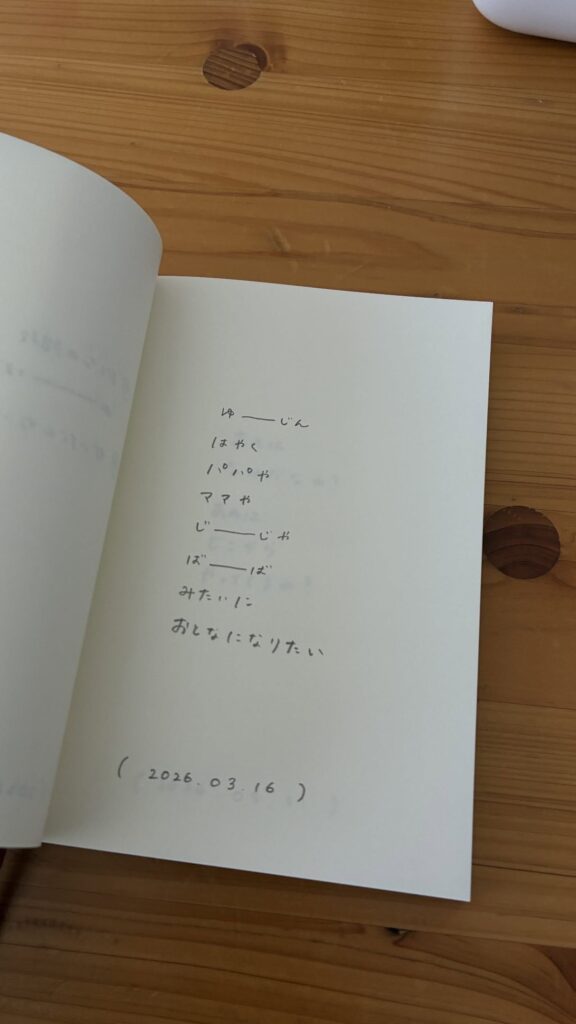 ゆーじん
はやく
パパや
ママや
じーじゃ
ばーば
みたいに
おとなになりたい
( 2026.03.16 )